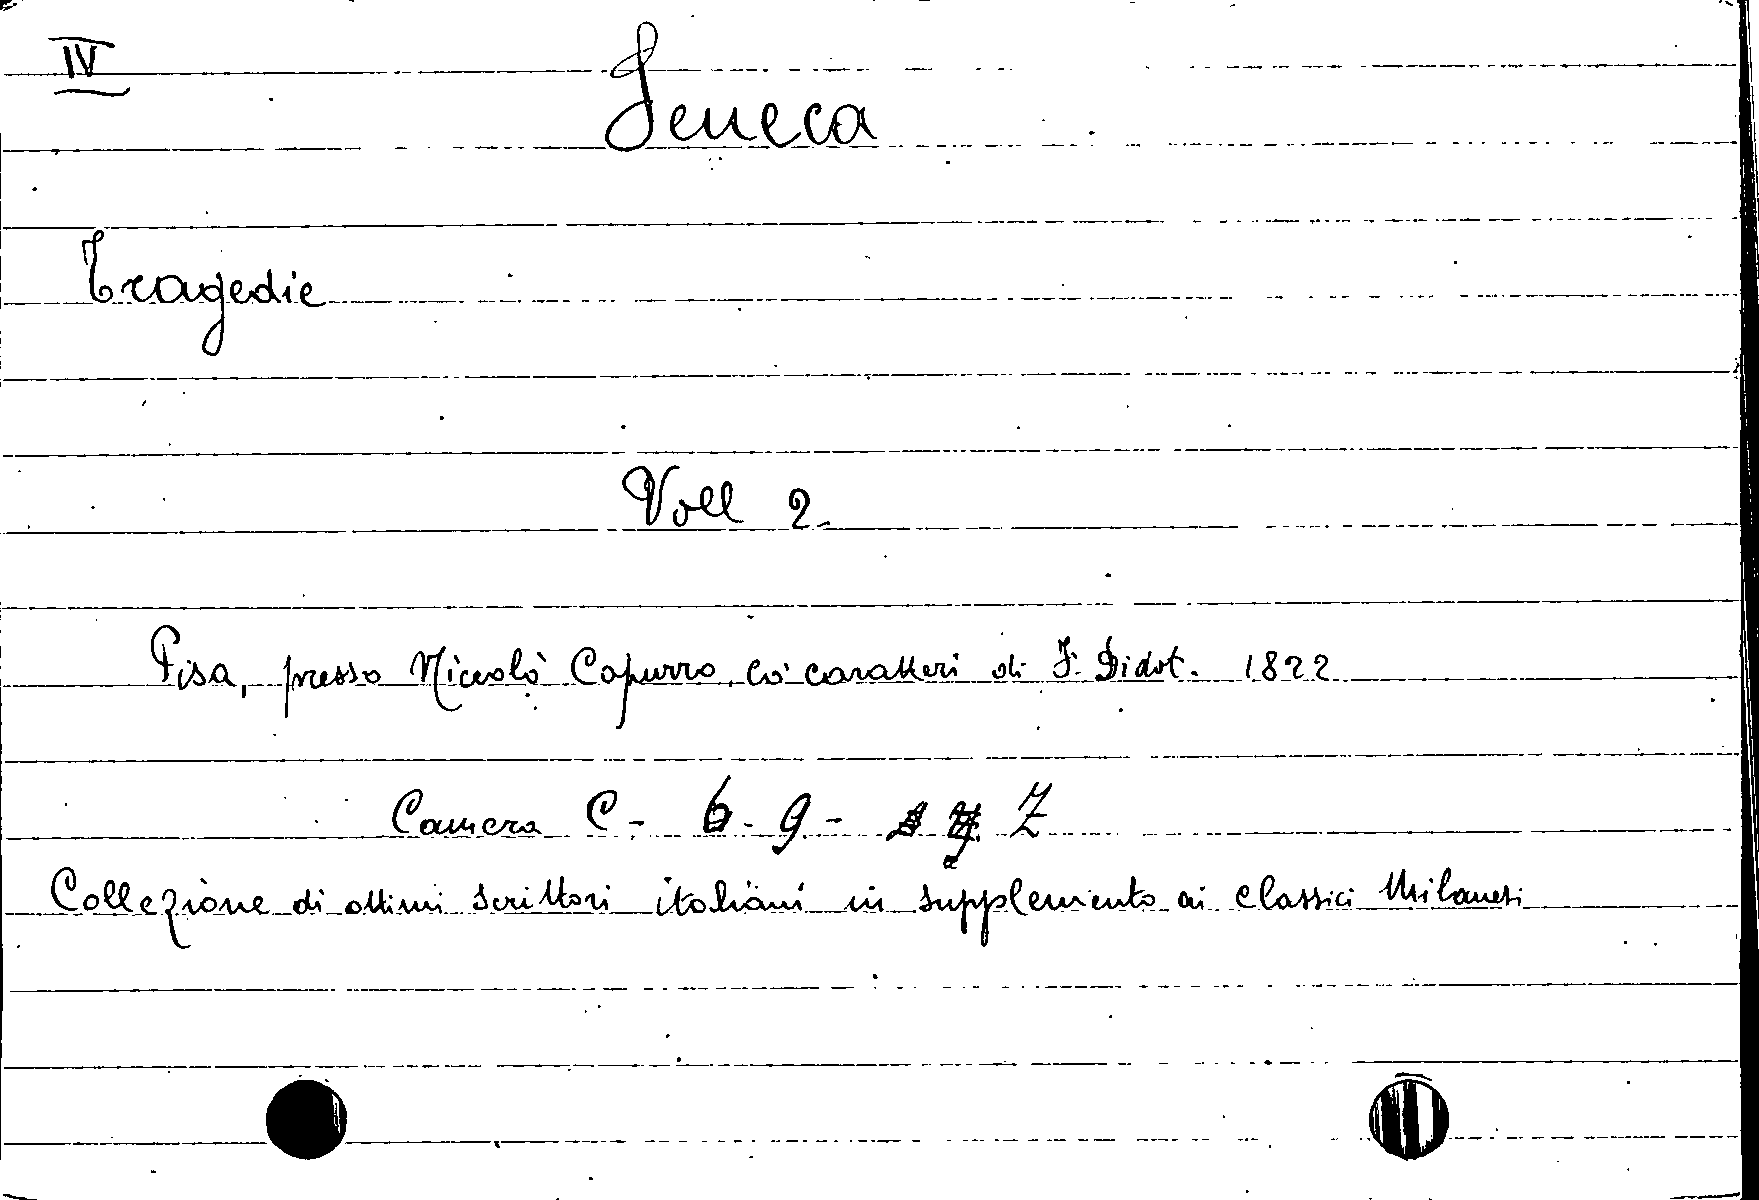 IV
Seneca
Tragedie
Voll 2.
Pisa, presso Niccolò Capurro, co' caratteri di F. Didot. 1822
Camera C - 6 - 9 - Z
Collezione di ottimi scrittori italiani in supplemento ai classici Milanesi